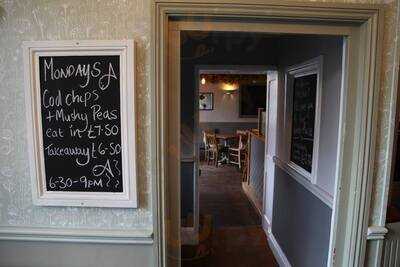 MONDAYS
Cod chips
+ Mushy Peas
eat in £7.50
Takeaway £6.50
6-30 - 9PM